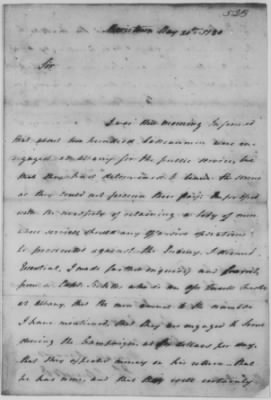 525
Morristown May 20th. 1780
Sir
I was this morning informed
that about two hundred Batteauxmen were en-
gaged at Albany for the public service, but
that they had determined to leave the same
as they could not procure their pay. Impressed
with the necessity of retaining a body of men
whose services should any offensive operations
be prosecuted against the Indians, I deemed
Essential, I made further enquiry and found,
from a Capt.
at Albany, that the men amount to the number
I have mentioned, that they are engaged to serve
during the Campaign at dollars per day,
that they expected money on his return that
he has none, and that they will certainly